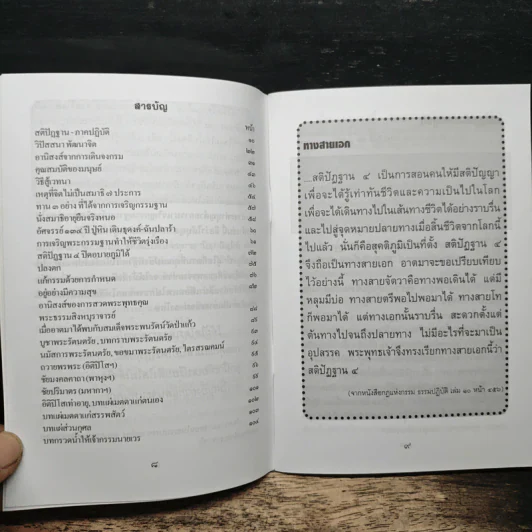 สารบัญ
หน้า
สติปัฏฐาน - ภาคปฏิบัติ
วิปัสสนา พัฒนาจิต
อานิสงส์จากการเดินจงกรม
คุณสมบัติของมนุษย์
วิธีสู้เวทนา
เหตุที่จิตไม่เป็นสมาธิ ๗ ประการ
ทาน ๓ อย่าง ที่ได้จากการเจริญกรรมฐาน
นั่งสมาธิอายุยืนจริงหนอ
การเจริญพระกรรมฐานทำให้ชีวิตรุ่งเรือง
สติปัฏฐาน ๔ ปิดอบายภูมิได้
ปลงตก
แก้กรรมด้วยการกำหนด
อยู่อย่างมีความสุข
อานิสงส์ของการสวดพระพุทธคุณ
พระธรรมสิงหบุราจารย์
เมื่ออาตมาได้พบกับสมเด็จพระพนรัตน์วัดป่าแก้ว
บูชาพระรัตนตรัย, บทกราบพระรัตนตรัย
นมัสการพระรัตนตรัย, ขอขมาพระรัตนตรัย, ไตรสรณคมน์
ถวายพรพระ (อิติปิโสฯ)
ชัยมงคลคาถา (พาหุงฯ)
ชัยปริมาตร (มหากาฯ)
อิติปิโสเท่าอายุ, บทแผ่เมตตาแก่ตนเอง
บทแผ่เมตตาแก่สรรพสัตว์
บทแผ่ส่วนกุศล
บทกรวดน้ำให้เจ้ากรรมนายเวร
๘
ทางสายเอก
...สติปัฏฐาน ๔ เป็นการสอนคนให้มีสติปัญญา
เพื่อจะได้รู้เท่าทันชีวิตและความเป็นไปในโลก
เพื่อจะได้เดินทางไปในเส้นทางชีวิตได้อย่างราบรื่น
และไปสู่จุดหมายปลายทางเมื่อสิ้นชีวิตจากโลกนี้
ไปแล้ว นั่นก็คือสุคติภูมิเป็นที่ตั้ง สติปัฏฐาน ๔
จึงถือเป็นทางสายเอก อาตมาจะขอเปรียบเทียบ
ไว้อย่างนี้ ทางสายจัตวาคือทางพอเดินได้ แต่มี
หลุมมีบ่อ ทางสายตรีพอไปพอมาได้ ทางสายโท
ก็พอมาได้ แต่ทางเอกนั้นราบรื่น สะดวกตั้งแต่
ต้นทางไปจนถึงปลายทาง ไม่มีอะไรที่จะมาเป็น
อุปสรรค พระพุทธเจ้าจึงทรงเรียกทางสายเอกนี้ว่า
สติปัฏฐาน ๔
(จากหนังสือกฎแห่งกรรม ธรรมปฏิบัติ เล่ม ๑๐ หน้า ๑๕๖)
๙